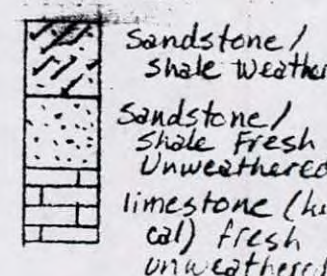 Sandstone/
Shale Weather
Sandstone/
Shale Fresh
Unweathered
limestone (hi
cal) fresh
unweathered